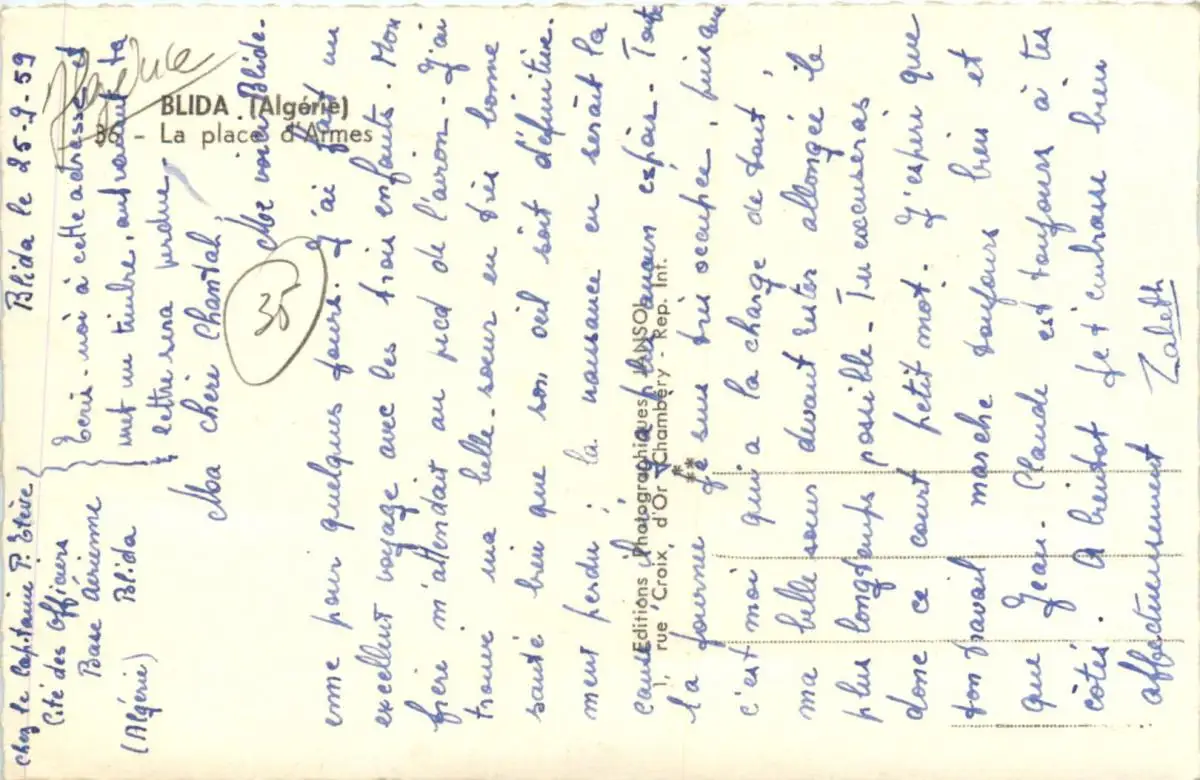 Blida le 25-9-59
chez le Capitaine P. Estève
Cité des Officiers
Base aérienne
Blida
(Algérie)
Ecris-moi à cette adresse et
met un timbre, autrement ta
lettre sera perdue
Algérie
35
Ma chère Chantal,
Me voici Blide-
enne pour quelques jours. J'ai fait un
excellent voyage avec les trois enfants. Mon
frère m'attendait au pied de l'avion. J'ai
trouvé ma belle-soeur en très bonne
santé bien que son oeil soit définitive-
ment perdu ; la naissance en serait la
cause il n'y a plus aucun espoir - Toute
la journée je suis très occupée, puisque
c'est moi qui a la charge de tout,
ma belle soeur devant rester allongée le
plus longtemps possible - Tu excuseras
donc ce court petit mot. J'espère que
ton travail marche toujours bien et
que Jean-Claude est toujours à tes
côtés. A bientôt je t'embrasse bien
affectueusement Zabeth
BLIDA (Algérie)
36 - La place d'Armes
Editions Photographiques JANSOL
1, rue Croix d'Or Chambéry - Rep. Int.